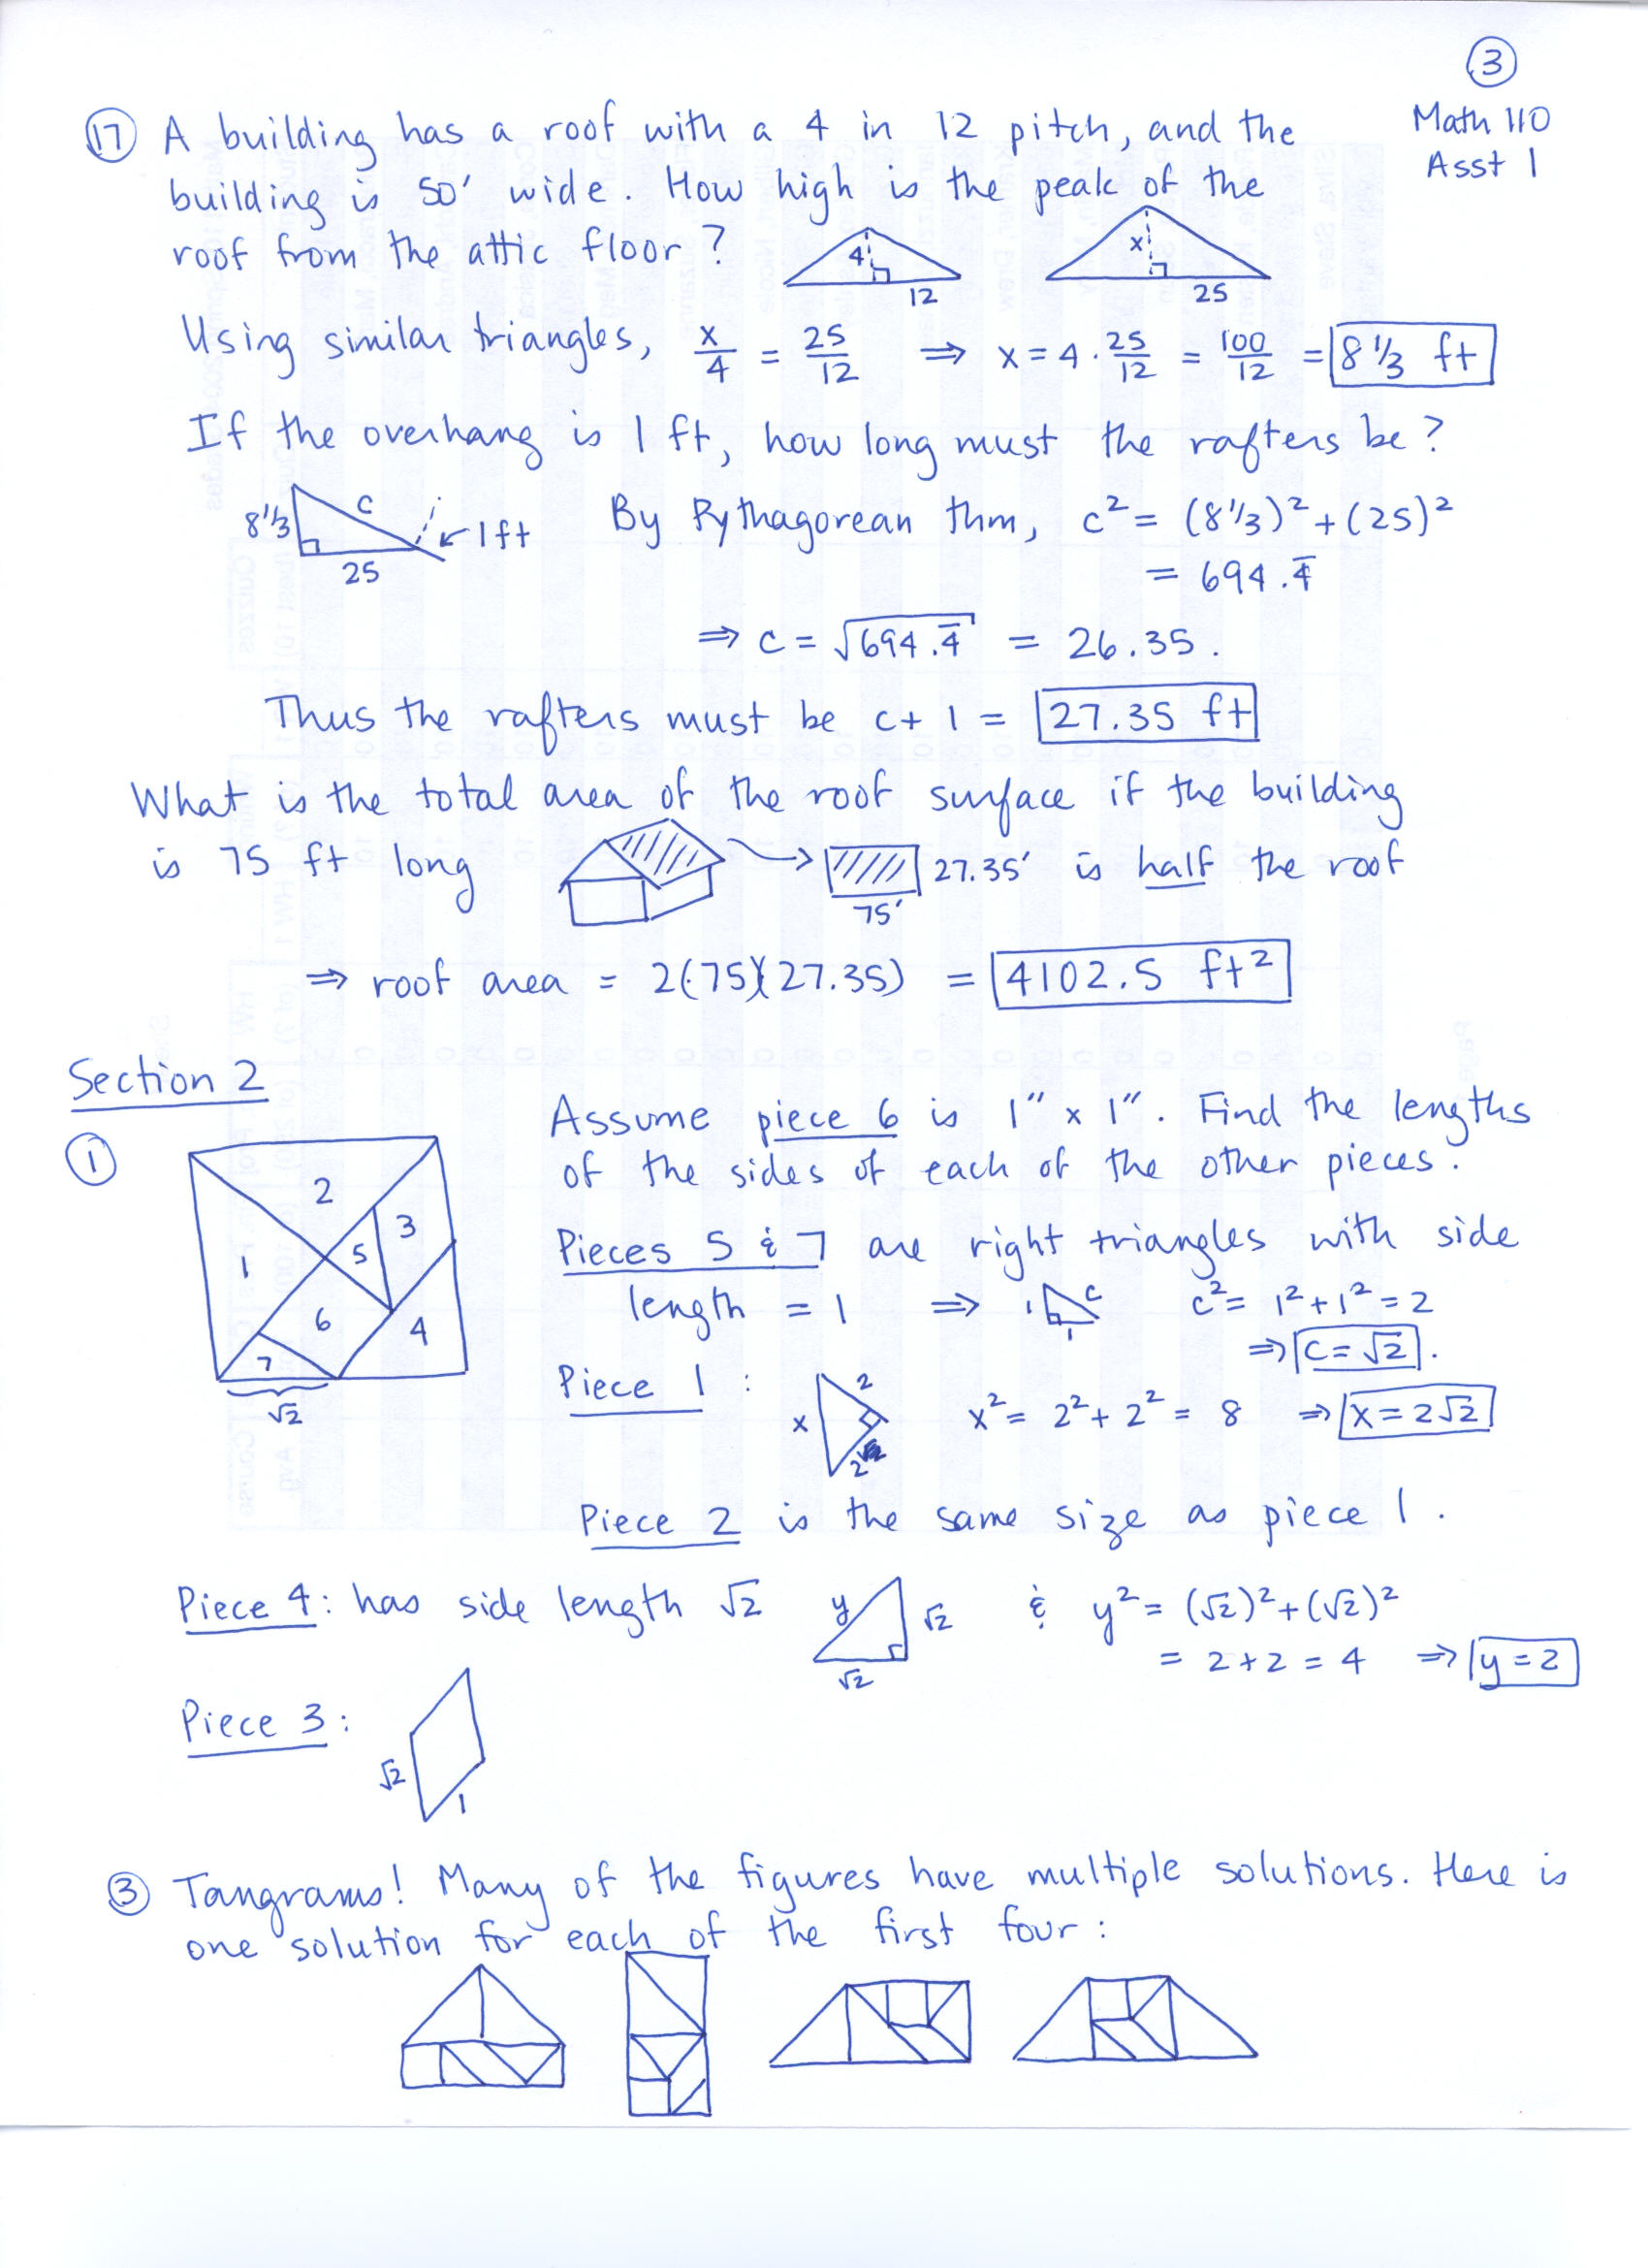 ③
Math 110
Asst 1
⑰ A building has a roof with a 4 in 12 pitch, and the
building is 50' wide. How high is the peak of the
roof from the attic floor?
4
12
x
25
Using similar triangles, x/4 = 25/12 ⇒ x = 4 · 25/12 = 100/12 = 8 1/3 ft
If the overhang is 1 ft, how long must the rafters be?
8 1/3
c
25
1ft
By Pythagorean thm, c² = (8 1/3)² + (25)²
= 694.4̅
⇒ c = √694.4̅ = 26.35.
Thus the rafters must be c + 1 = 27.35 ft
What is the total area of the roof surface if the building
is 75 ft long
27.35' is half the roof
75'
⇒ roof area = 2(75)(27.35) = 4102.5 ft²
Section 2
①
1
2
3
4
5
6
7
√2
Assume piece 6 is 1" x 1". Find the lengths
of the sides of each of the other pieces.
Pieces 5 & 7 are right triangles with side
length = 1 ⇒ 1 1 c c² = 1² + 1² = 2
⇒ c = √2.
Piece 1: x 2 2 x² = 2² + 2² = 8 ⇒ x = 2√2
Piece 2 is the same size as piece 1.
Piece 4: has side length √2 y √2 √2 & y² = (√2)² + (√2)²
= 2 + 2 = 4 ⇒ y = 2
Piece 3:
√2
1
③ Tangrams! Many of the figures have multiple solutions. Here is
one solution for each of the first four: